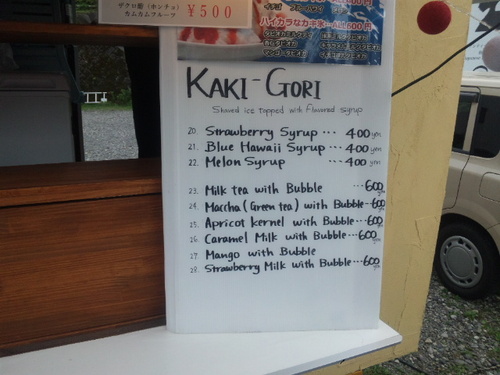 ザクロ酢（ホンチョ）
カムカムフルーツ
¥500
ハイカラなカキ氷
KAKI-GORI
Shaved ice topped with flavored syrup
20. Strawberry Syrup ... 400 yen
21. Blue Hawaii Syrup ... 400 yen
22. Melon Syrup ... 400 yen
23. Milk tea with Bubble ... 600 yen
24. Maccha (Green tea) with Bubble ... 600
25. Apricot kernel with Bubble ... 600
26. Caramel Milk with Bubble ... 600
27. Mango with Bubble
28. Strawberry Milk with Bubble ... 600 yen